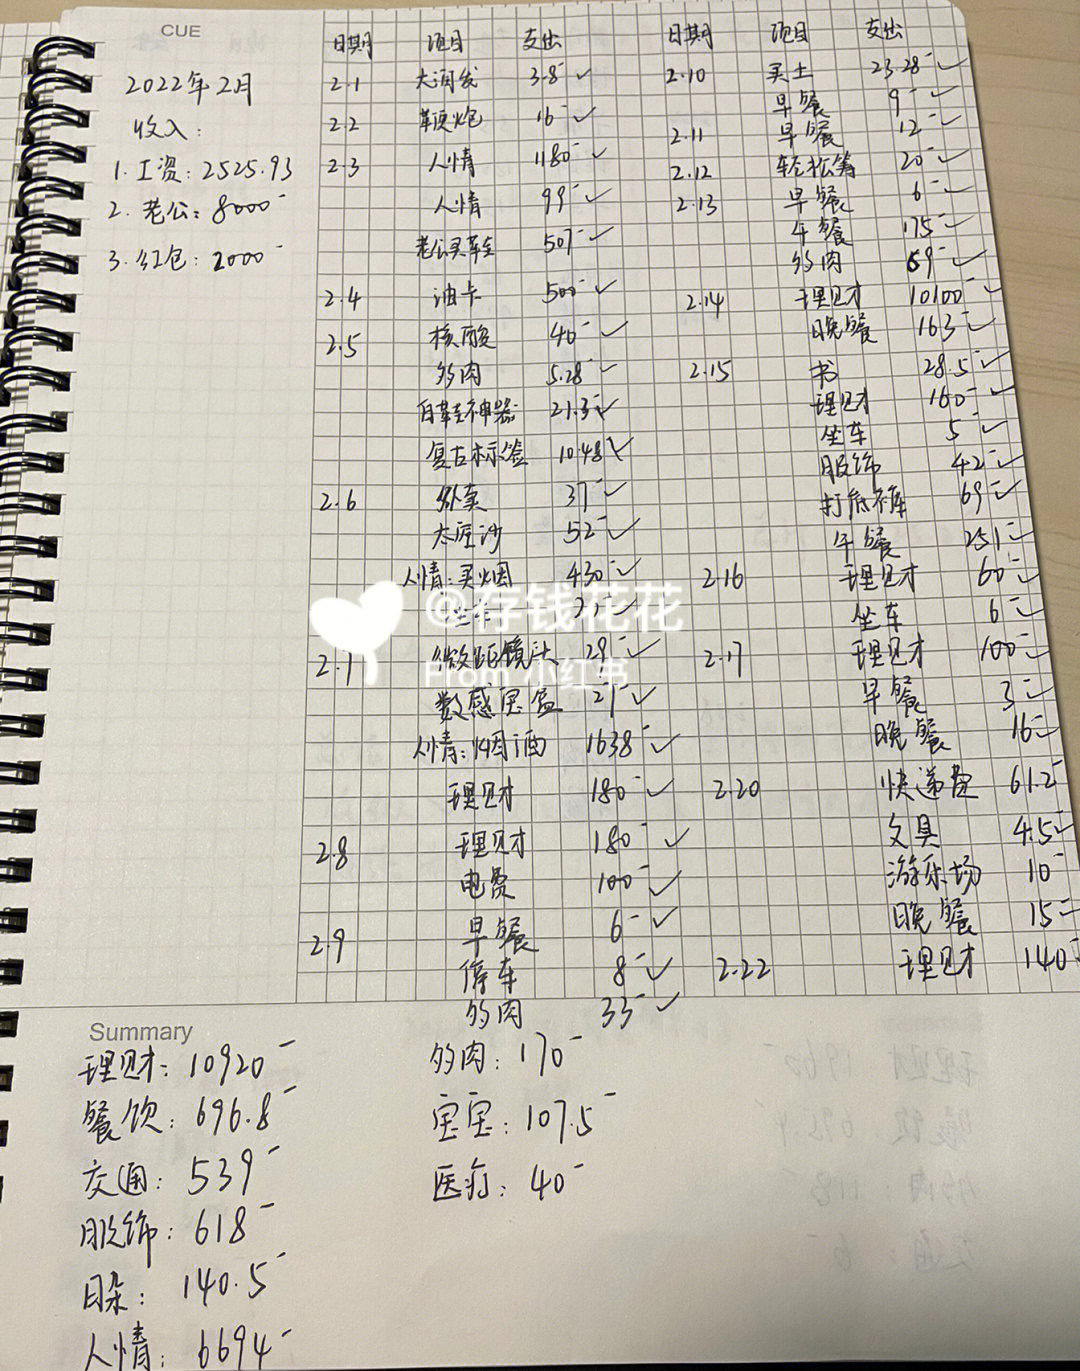 CUE
2022年2月
收入:
1. 工资: 2525.93
2. 老公: 8000-
3. 红包: 2000-
日期 项目 支出
2.1 大润发 3.8- ✓
2.2 鞭炮 16- ✓
2.3 人情 1180- ✓
人情 99- ✓
老公买鞋 507- ✓
2.4 油卡 500- ✓
2.5 核酸 40- ✓
多肉 5.28- ✓
神器 21.3 ✓
复古标签 10.48 ✓
2.6 外卖 37- ✓
太豆沙 52- ✓
人情: 买烟 430- ✓
坐车 ✓
2.7 微距镜头 29- ✓
数感宝盒 27- ✓
人情: 烟酒 1638- ✓
理财 180- ✓
2.8 理财 180- ✓
电费 100- ✓
2.9 早餐 6- ✓
停车 8- ✓
多肉 33- ✓
日期 项目 支出
2.10 买土 23.28- ✓
早餐 9- ✓
2.11 早餐 12- ✓
2.12 轻松筹 20- ✓
2.13 早餐 6- ✓
午餐 175- ✓
多肉 69- ✓
2.14 理财 10100- ✓
晚餐 163- ✓
2.15 书 28.5- ✓
理财 160- ✓
坐车 5- ✓
服饰 42- ✓
打底裤 69- ✓
午餐 251- ✓
2.16 理财 60- ✓
坐车 6- ✓
2.17 理财 100- ✓
早餐 3- ✓
晚餐 16- ✓
2.20 快递费 61.2-
文具 4.5- ✓
游乐场 10-
晚餐 15- ✓
2.22 理财 140-
@存钱花花
From 小红书
Summary
理财: 10920-
餐饮: 696.8-
交通: 539-
服饰: 618-
日杂: 140.5-
人情: 6694-
多肉: 170-
宝宝: 107.5-
医疗: 40-